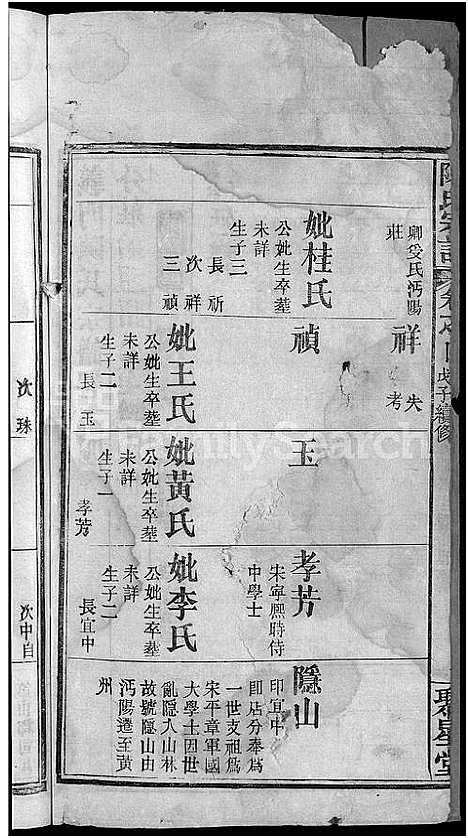 陳氏宗譜
戊子續修
聚星堂
卿受氏沔陽
莊
祥 失考
妣桂氏
公妣生卒葬
未詳
生子三
長祈
次祥
三禎
禎
妣王氏
公妣生卒葬
未詳
生子二
長玉
次珠
玉
妣黃氏
公妣生卒葬
未詳
生子一
孝芳
孝芳
宋寧熙時侍
中學士
妣李氏
公妣生卒葬
未詳
生子二
長宜中
次中自
隱山
印宜中
卽居分奉爲
一世支祖爲
宋平章軍國
大學士因世
亂隱入山林
故號隱山由
沔陽遷至黃
州
FamilySearch